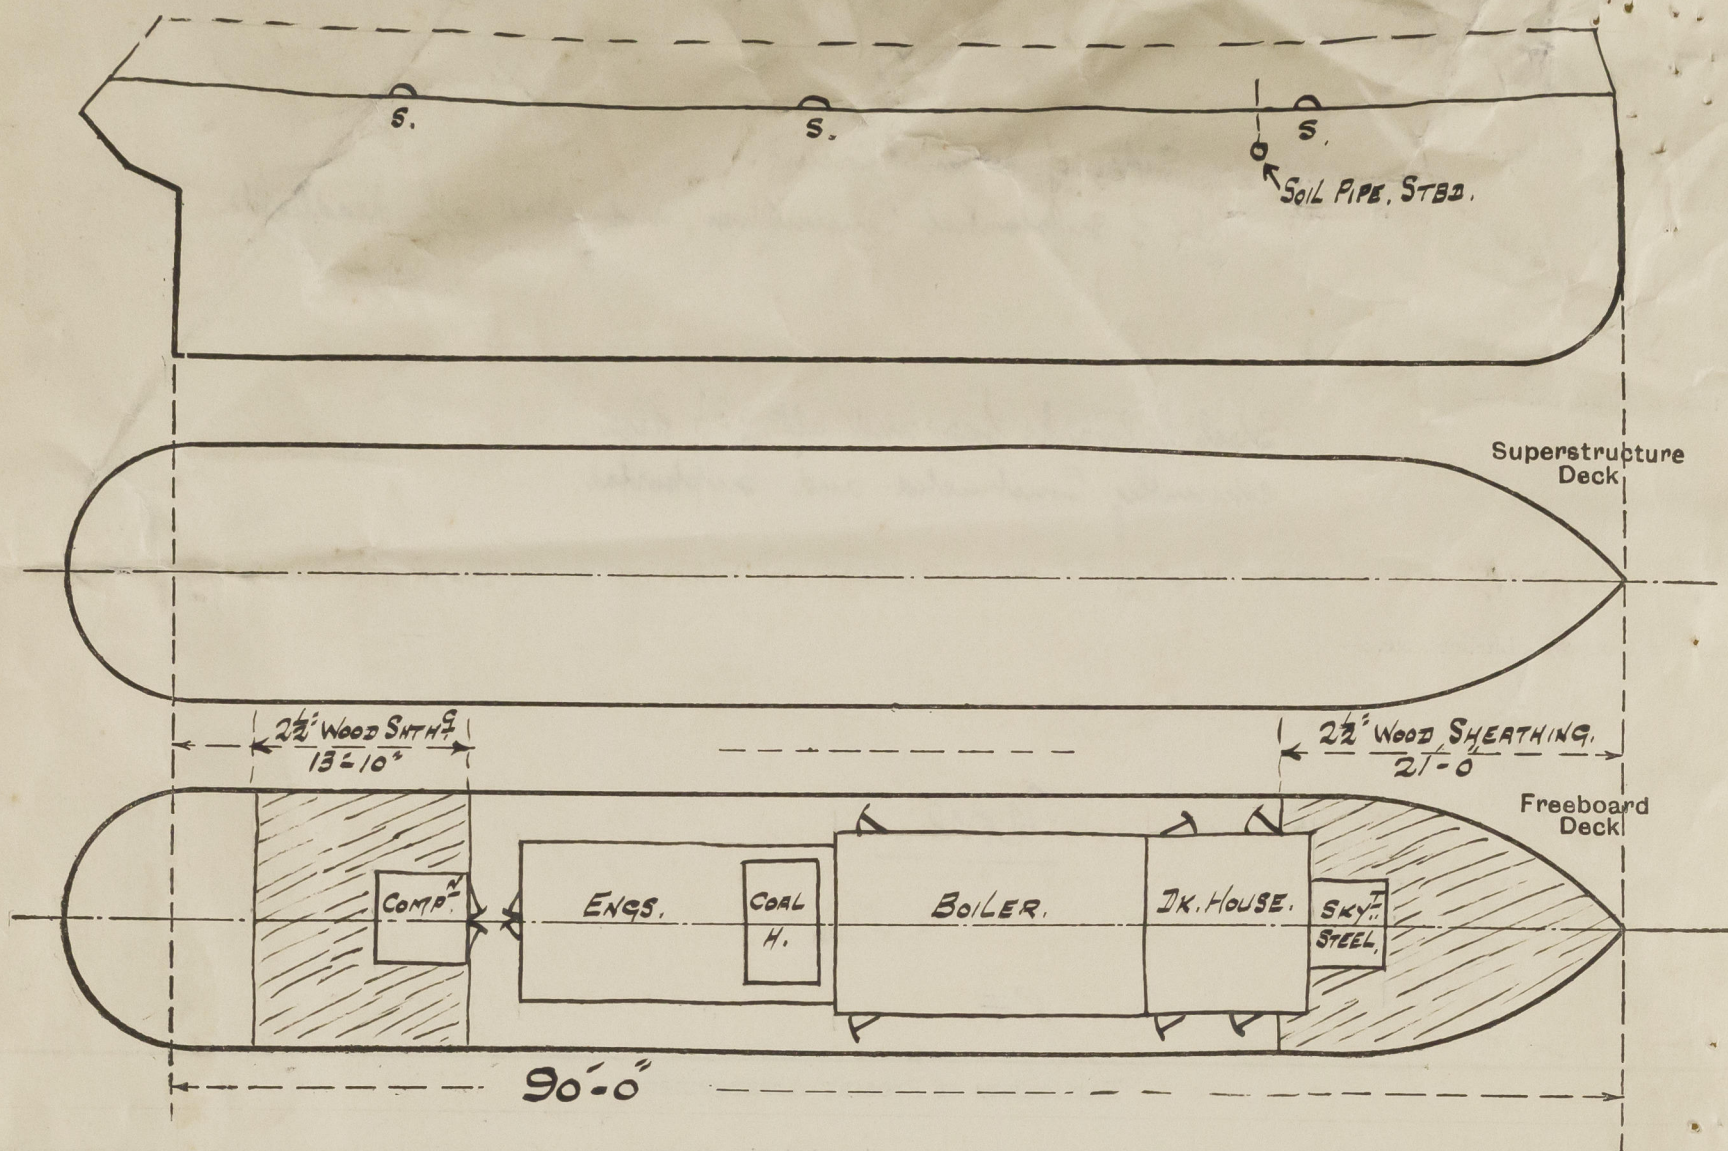 S.
S.
S.
SOIL PIPE, STBD.
Superstructure
Deck
2½" WOOD SHTHG.
13'-10"
2½" WOOD SHEATHING.
21'-0"
Freeboard
Deck
COMPN.
ENGS.
COAL
H.
BOILER.
DK. HOUSE.
SKYT.
STEEL.
90'-0"